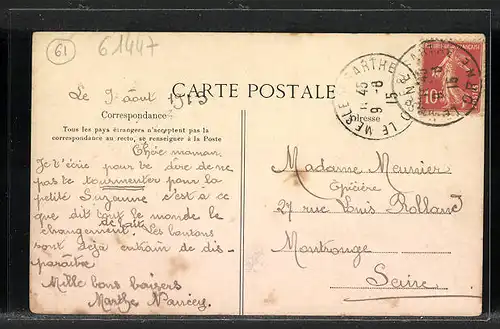 61
61447
CARTE POSTALE
Le 9 août 1915
Correspondance
Adresse
Tous les pays étrangers n'acceptent pas la
correspondance au recto, se renseigner à la Poste
LE MESLE S SARTHE
ORNE
9 -8
15
10
Chère maman,
Je t'écris pour te dire de ne
pas te tourmenter pour la
petite Suzanne c'est à ce
que dit tout le monde le
changement de lait. Les boutons
sont déjà entrain de dis-
paraître
Mille bons baisers
Marthe Nancey
Madame Meunier
Epicière
27 rue Louis Rolland
Montrouge
Seine